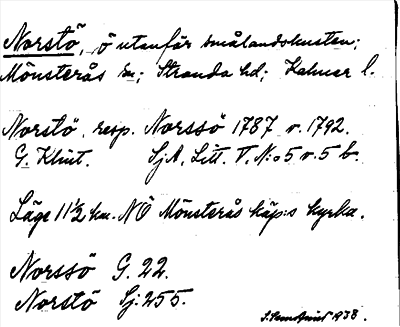 Norstö, ö utanför smålandskusten;
Mönsterås sn; Stranda hd; Kalmar l.
Norstö resp. Norssö 1787 r. 1792.
G. Klint. SjA, Litt. V. N:o 5 r. 5 b.
Läge 11½ km. NÖ Mönsterås köp:s kyrka.
Norssö G. 22.
Norstö Sj: 255.
1938.